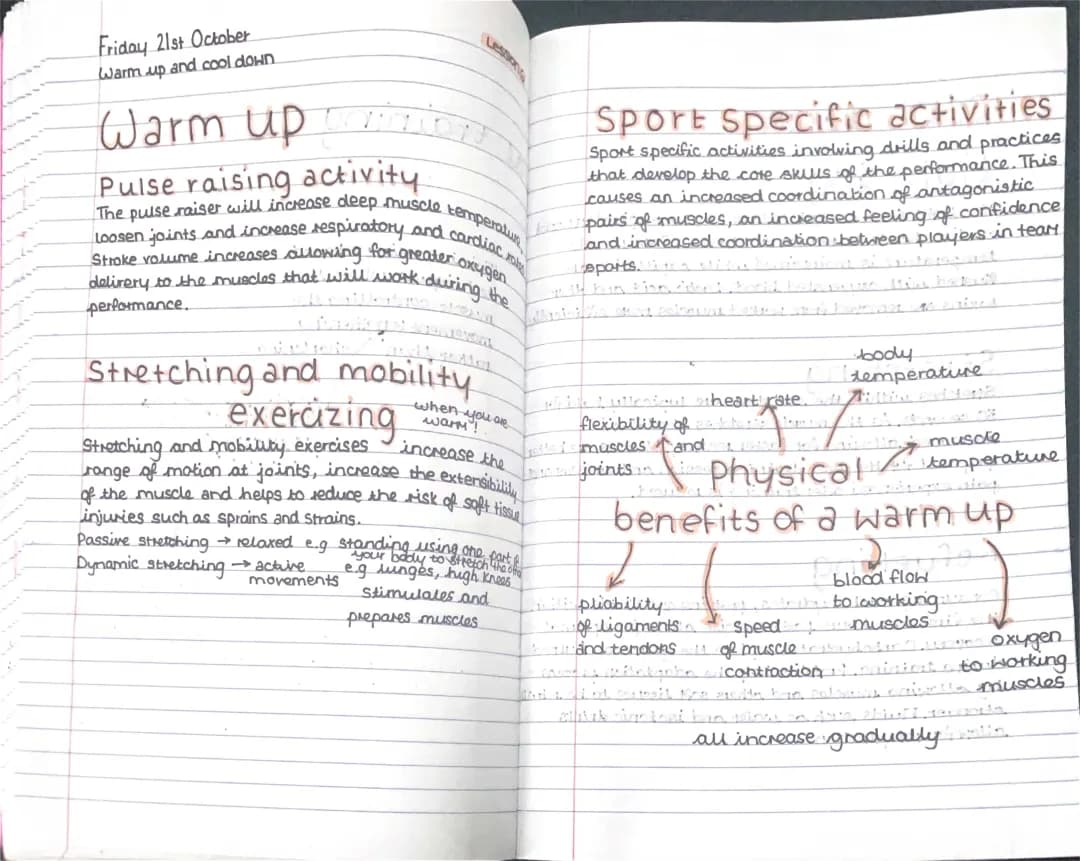 Friday 21st October
Warm up and cool down
Lesson
Warm up
Pulse raising activity
The pulse raiser will increase deep muscle temperature,
loosen joints and increase respiratory and cardiac rates
Stroke volume increases allowing for greater oxygen
delivery to the muscles that will work during the
performance.
Stretching and mobility
exercizing
when you are
warm!
Stretching and mobility exercises increase the
range of motion at joints, increase the extensibility
of the muscle and helps to reduce the risk of soft tissue
injuries such as sprains and strains.
Passive stretching → relaxed e.g standing using one part of
your body to stretch the
Dynamic stretching → active e.g lunges, high knees
movements
Stimulates and
prepares muscles
Sport specific activities
Sport specific activities involving drills and practices
that develop the core skills of the performance. This
causes an increased coordination of antagonistic
pairs of muscles, an increased feeling of confidence
and increased coordination between players in team
sports.
body
temperature
heart rate
flexibility of
muscles and
joints
muscle
temperature
Physical
benefits of a warm up
pliability
of ligaments
and tendons
speed
of muscle
contraction
blood flow
to working
muscles
oxygen
to working
muscles
all increase gradually